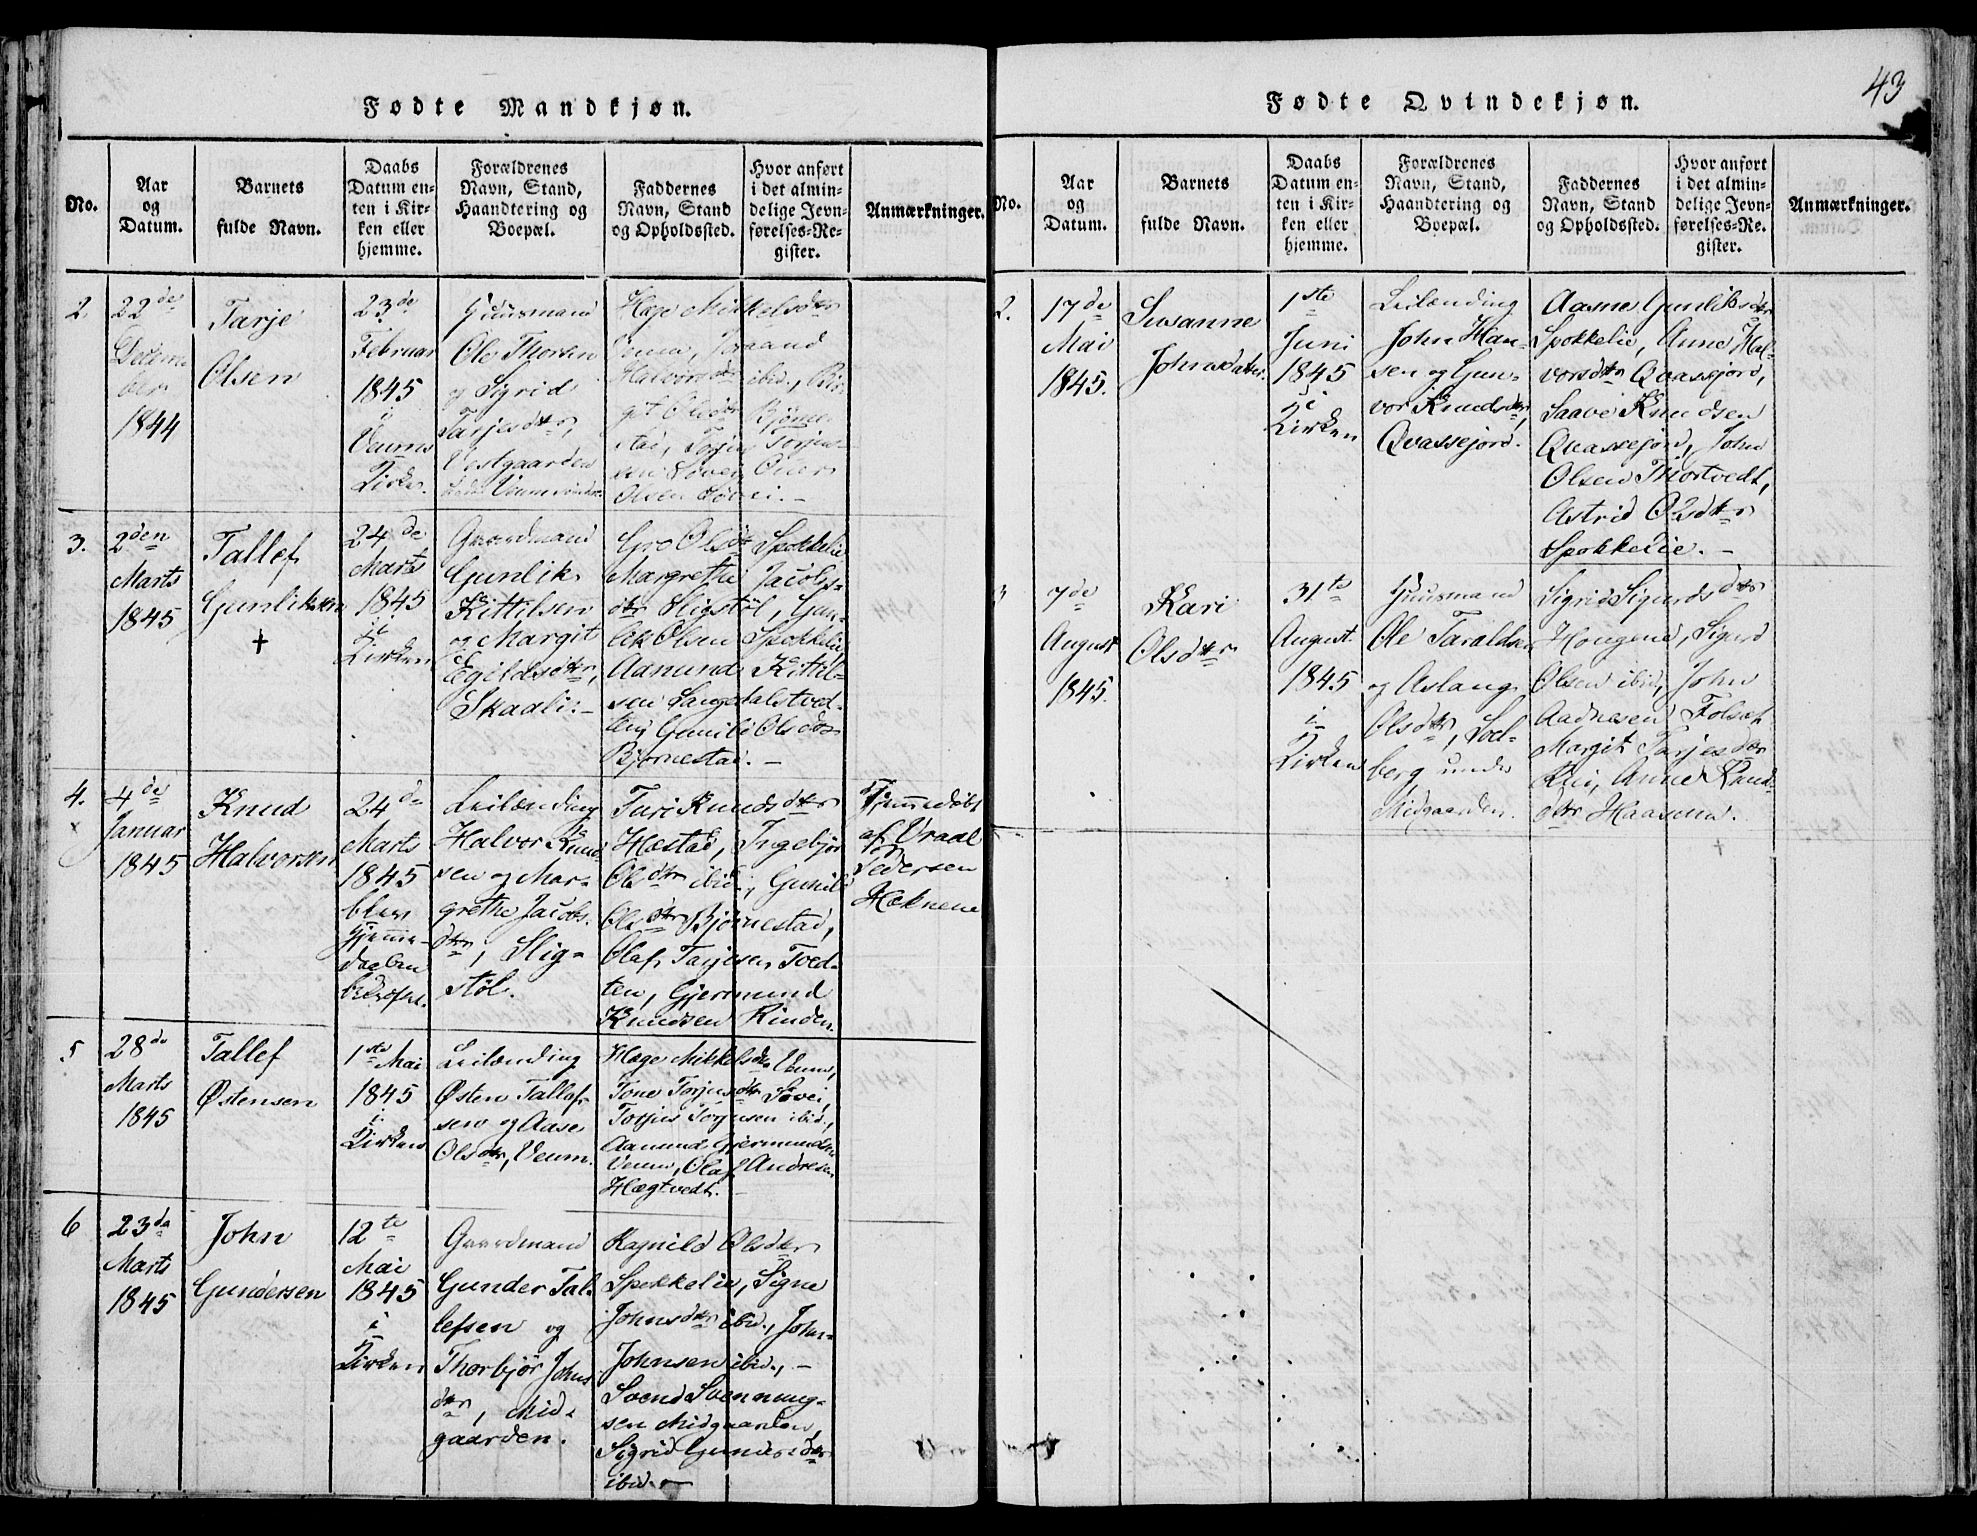 43
Fødte Mandkjøn.
No.
Aar
og
Datum.
Barnets
fulde Navn.
Daabs
Datum en-
ten i Kir-
ken eller
hjemme.
Forældrenes
Navn, Stand,
Haandtering og
Boepæl.
Faddernes
Navn, Stand
og Opholdssted.
Hvor anført
i det almin-
delige Jevn-
førelses-Re-
gister.
Anmærkninger.
2.
22de
1844
Tarje
Olsen
23de
Februar
1845
i
Veums
Kirke.
Huusmand
Ole
og Sigrid
Tarjesdtr,
Vestgaarden
Hæge Mikkelsdtr
Veum,
Halvorsdtr ibid.,
git Olsdtr Bjørne-
stad,
Olsen
3.
2den
Marts
1845
Tallef
Gunliksen
†
24de
Marts
1845
i
Kirken
Gaardmand
Gunlik
Kittilsen
og Margit
Egildsdtr,
Skaali. –
Gro Olsdtr Spokkelie
Margrethe Jacobs-
dtr Sligstøl, Gun-
lik Olsen Spokkelie,
Aamund Kittil-
sen
Gunild Olsdtr
Bjørnestad. –
4.
x
4de
Januar
1845
Knud
Halvorsen
24de
Marts
1845
blev
Hjemme-
daaben
Leilænding
Halvor Knud-
sen og Mar-
grethe Jacobs-
dtr, Slig-
støl.
Turi Knudsdtr
Hæstad, Ingebjør
Olsdtr ibid., Gunild
Olsdtr Bjørnestad,
Olaf Tarjesen Tved-
ten, Gjermund
Knudsen Rinden.
Hjemmedøbt
af Vraal
Pedersen
5
28de
Marts
1845
Tallef
Østensen
1ste Mai
1845
i
Kirken
Leilænding
Østen Tallef-
sen og Aase
Olsdtr, Veum.
Hæge Mikkelsdtr Veum,
Tone Torjusdtr Løvei,
Torjus Torjusen ibid.,
Aamund Gjermundsen
Veum, Olaf Andresen
Hægtvedt. –
6
23de
Marts
1845
John
Gundersen
12te
Mai
1845
i
Kirken
Gaardmand
Gunder Tal-
lefsen og
Thorbjør Johns
dtr, Mid-
gaarden.
Ragnild Olsdtr
Spokkelie, Signe
Johnsdtr ibid., John
Johnsen ibid., –
Svend Svennung-
sen Midgaarden,
Sigrid Gundersdtr
ibid. –
Fødte Qvindekjøn.
No.
Aar
og
Datum.
Barnets
fulde Navn.
Daabs
Datum en-
ten i Kir-
ken eller
hjemme.
Forældrenes
Navn, Stand,
Haandtering og
Boepæl.
Faddernes
Navn, Stand
og Opholdssted.
Hvor anført
i det almin-
delige Jevn-
førelses-Re-
gister.
Anmærkninger.
2.
17de
Mai
1845.
Susanne
Johnsdatter.
1ste
Juni
1845
i
Kirken
Leilænding
John Han-
sen og Gun-
vor Knudsdtr,
Qvassejord.
Aasne Gunliksdtr
Spokkelie, Anne Hal-
vorsdtr Qvassejord,
Saave Knudsen
Qvassejord, John
Olsen Thortvedt,
Astrid Olsdtr
Spokkelie. –
3
7de
August
1845.
Kari
Olsdtr
31te
August
1845
i
Kirken
Huusmand
Ole Taraldsen
og Aslaug
Olsdtr, Sol-
berg under
Midgaarden.
Sigrid Sigurdsdtr
Haugene, Sigurd
Olsen ibid, John
Aadnesen
Margit Tarjesdtr
Anne Knud-
dtr